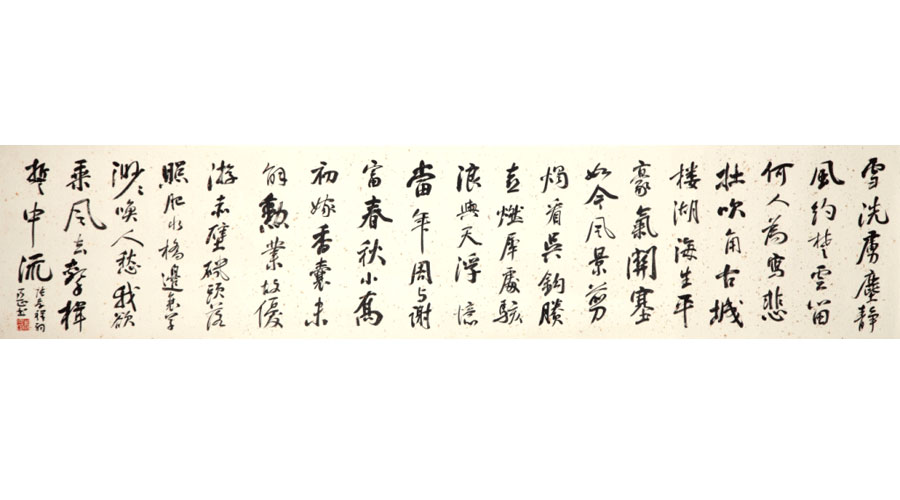 雪洗虜塵靜
風約楚雲留
何人為寫悲
壯吹角古城
楼湖海生平
豪氣關塞
如今風景剪
燭看吳鈎賸
喜燃犀處駭
浪與天浮憶
當年周与謝
富春秋小喬
初嫁香囊未
解勳業故優
游赤壁磯頭落
照肥水橋邊衰草
渺々喚人愁我欲
乘風去擊楫
誓中流
張孝祥詞
书